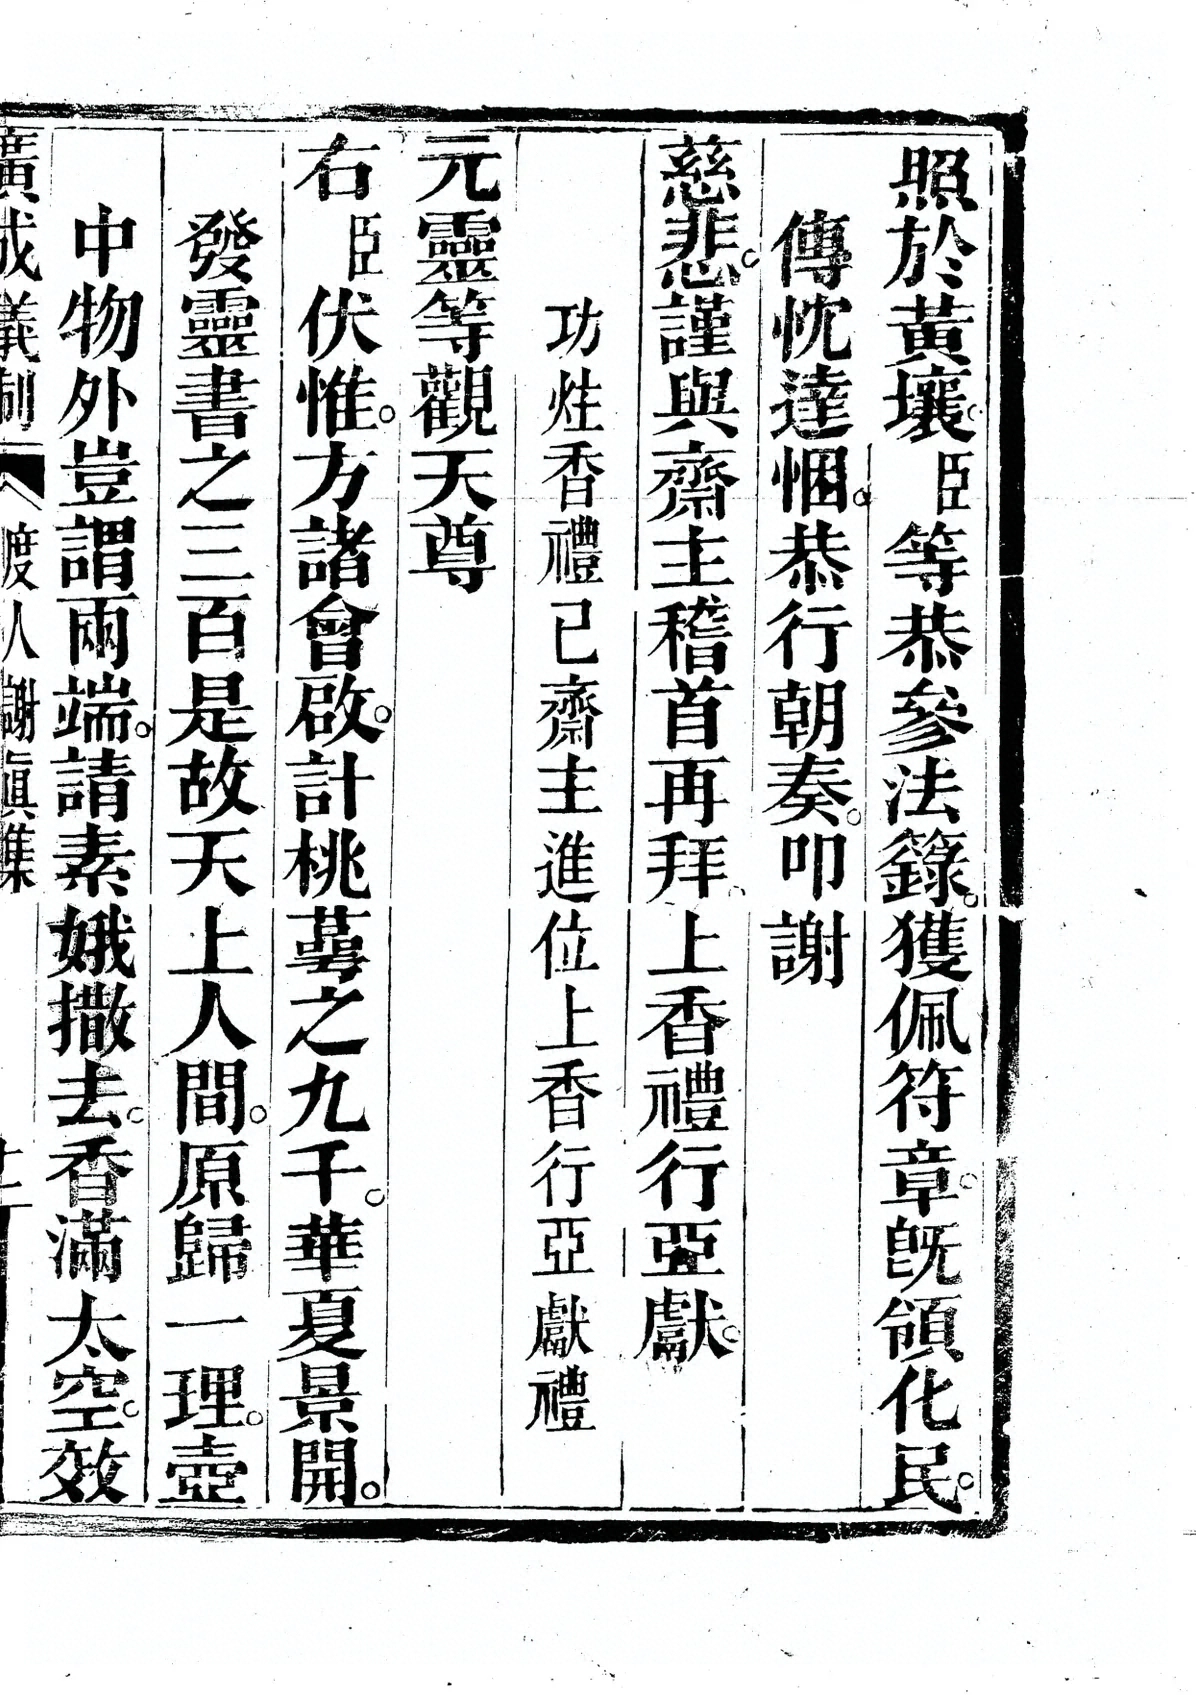 照於黃壤。臣等恭參法籙。獲佩符章。旣領化民。
傳忱達悃。恭行朝奏。叩謝
慈悲。謹與齋主稽首再拜。上香禮行亞獻。
功炷香禮已齋主進位上香行亞獻禮
元靈等觀天尊
右臣伏惟。方諸會啟。計桃蕚之九千。華夏景開。
發靈書之三百是故天上人間。原歸一理。壺
中物外豈謂兩端。請素娥撒去。香滿太空。效
廣成儀制 度人謝眞集 廿二